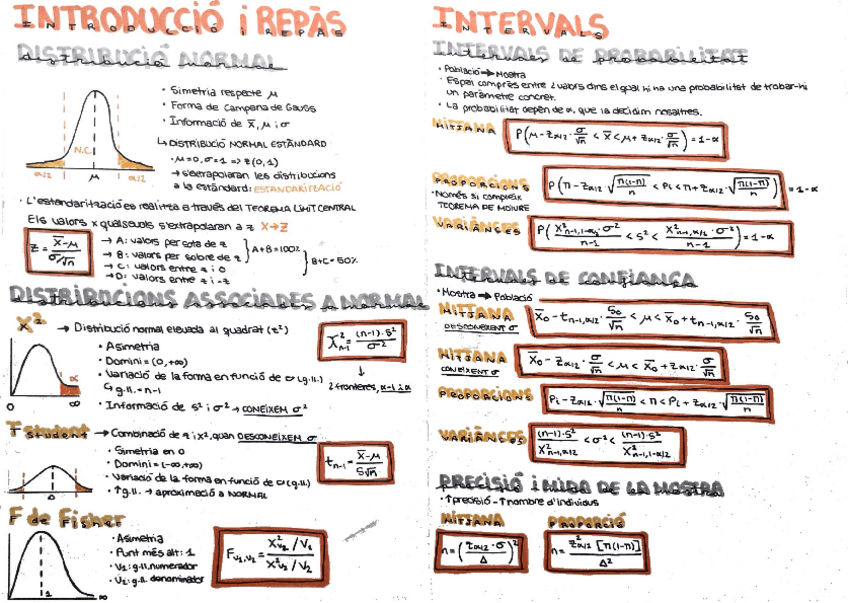 INTRODUCCIÓ i REPÀS
INTRODUCCIÓ i REPÀS
DISTRIBUCIÓ NORMAL
distribució normal
· Simetria respecte μ
· Forma de Campana de Gauss
· Informació de x̄, μ i σ
N.C.
α/2 μ α/2
↳ DISTRIBUCIÓ NORMAL ESTÀNDARD
· μ=0, σ=1 => z(0,1)
→ s'extrapolaran les distribucions
a la estàndard: ESTANDARITZACIÓ
· L'estandarització es realitza a través del TEOREMA LÍMIT CENTRAL
Els valors x qualsevols s'extrapolaran a z X→Z
z = x̄-μ / σ/√n
→ A: valors per sota de z
→ B: valors per sobre de z
A+B=100%
→ C: valors entre z i 0
→ D: valors entre z i -z
B+C=50%
DISTRIBUCIONS ASSOCIADES A NORMAL
X²
→ Distribució normal elevada al quadrat (z²)
· Asimetria
· Domini = (0,+∞)
· Variació de la forma en funció de ν (g.ll.)
↳ g.ll. = n-1
· Informació de s² i σ² → CONEIXEM σ²
α
0 ∞
X²n-1 = (n-1)·s² / σ²
2 fronteres, α-1 i α
T Student
→ Combinació de z i x², quan DESCONEIXEM σ
· Simetria en 0
· Domini = (-∞,+∞)
· Variació de la forma en funció de ν (g.ll.)
· ↑g.ll. → aproximació a NORMAL
0
tn-1 = x̄-μ / S√n
F de Fisher
· Asimetria
· Punt més alt: 1
· V1: g.ll. numerador
· V2: g.ll. denominador
1 ∞
Fv1,v2 = X²v1 / V1 / X²v2 / V2
INTERVALS
INTERVALS
Intervals de probabilitat
· Població → Mostra
· Espai comprès entre 2 valors dins el qual hi ha una probabilitat de trobar-hi
un paràmetre concret.
· La probabilitat depèn de α, que la decidim nosaltres.
MITJANA
P(μ - zα/2 · σ/√n < x̄ < μ + zα/2 · σ/√n) = 1-α
PROPORCIONS
· Només si compleix
TEOREMA DE MOIVRE
P(π - zα/2 · √π(1-π)/n < pi < π + zα/2 · √π(1-π)/n) = 1-α
VARIÀNCES
P(X²n-1,1-α/2 · σ² / n-1 < s² < X²n-1,α/2 · σ² / n-1) = 1-α
INTERVALS DE CONFIANÇA
· Mostra → Població
MITJANA
DESCONEIXENT σ
x̄0 - tn-1,α/2 · S0/√n < μ < x̄0 + tn-1,α/2 · S0/√n
MITJANA
CONEIXENT σ
x̄0 - zα/2 · σ/√n < μ < x̄0 + zα/2 · σ/√n
PROPORCIONS
pi - zα/2 · √π(1-π)/n < π < pi + zα/2 · √π(1-π)/n
VARIÀNCES
(n-1)·s² / X²n-1,α/2 < σ² < (n-1)·s² / X²n-1,1-α/2
PRECISIÓ i MIDA DE LA MOSTRA
· ↑precisió - ↑nombre d'individus
MITJANA
n = (zα/2 · σ / Δ)²
PROPORCIÓ
n = z²α/2 [π(1-π)] / Δ²